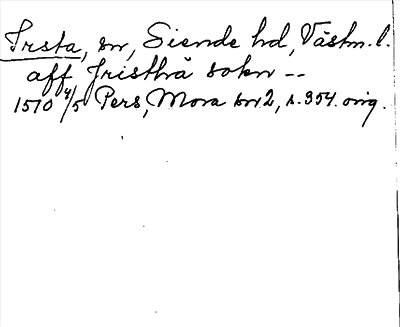 Irsta, sn, Siende hd, Västm. l.
aff Jristhà sokn --
1510 4/5 Pers, Mora sn 2, s. 354. orig.